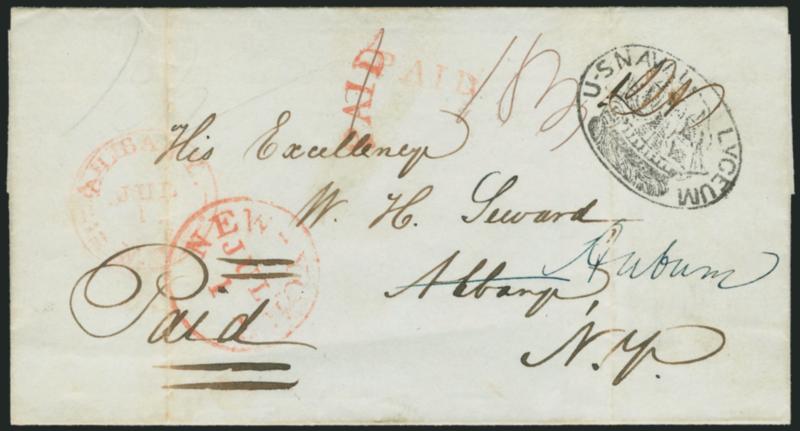 PAID
PAID
18¾
U·S NAVAL LYCEUM
His Excellency
W. H. Seward
Albany,
Auburn
N.Y.
Paid
NEW-YORK
JUL
1
JUL
1